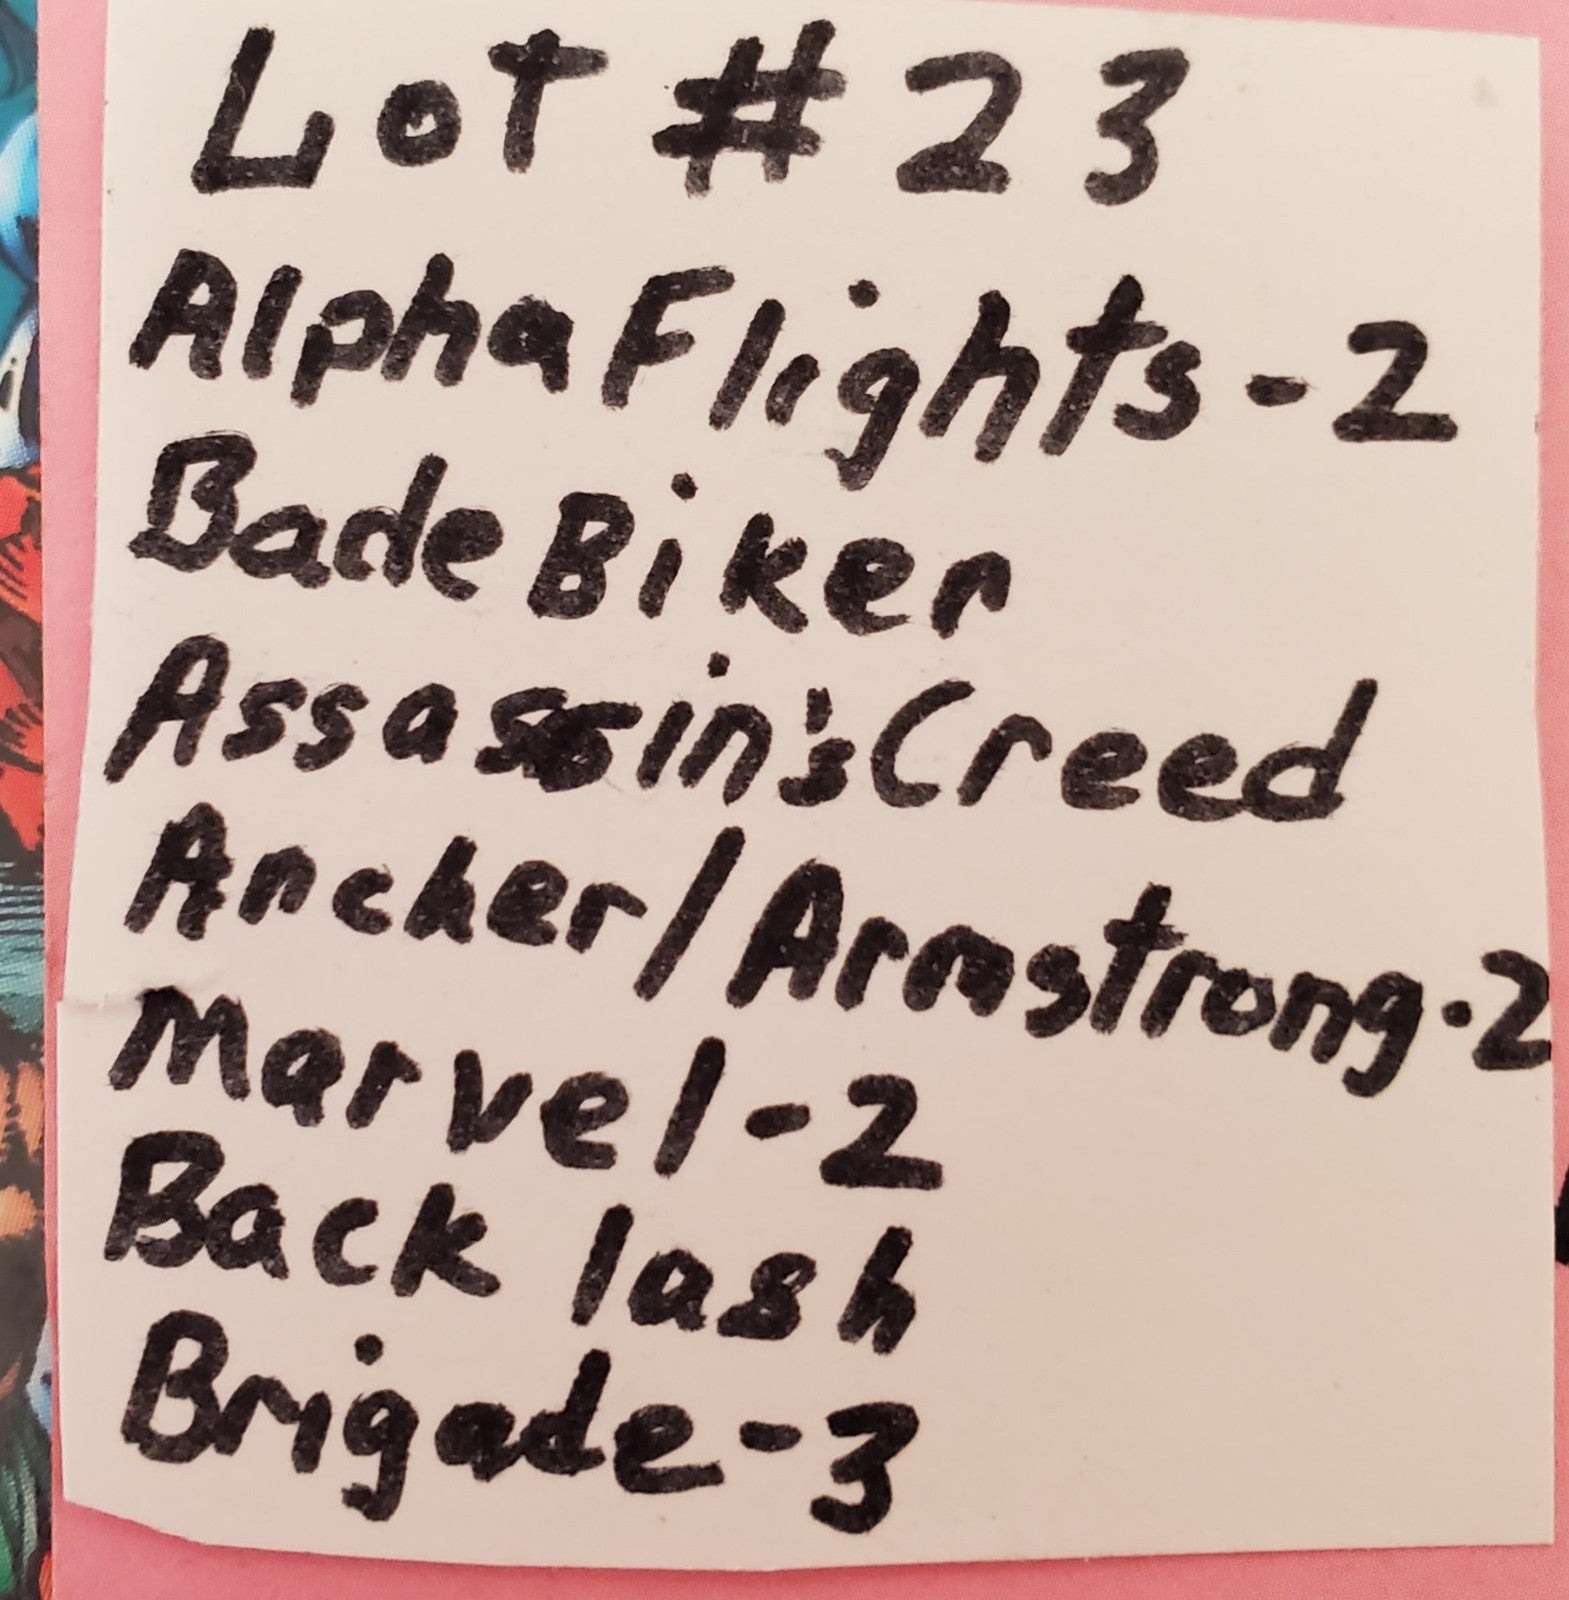 Lot # 23
Alpha Flights - 2
Bade Biker
Assassin's Creed
Ancher/Armstrong - 2
Marvel - 2
Back lash
Brigade - 3